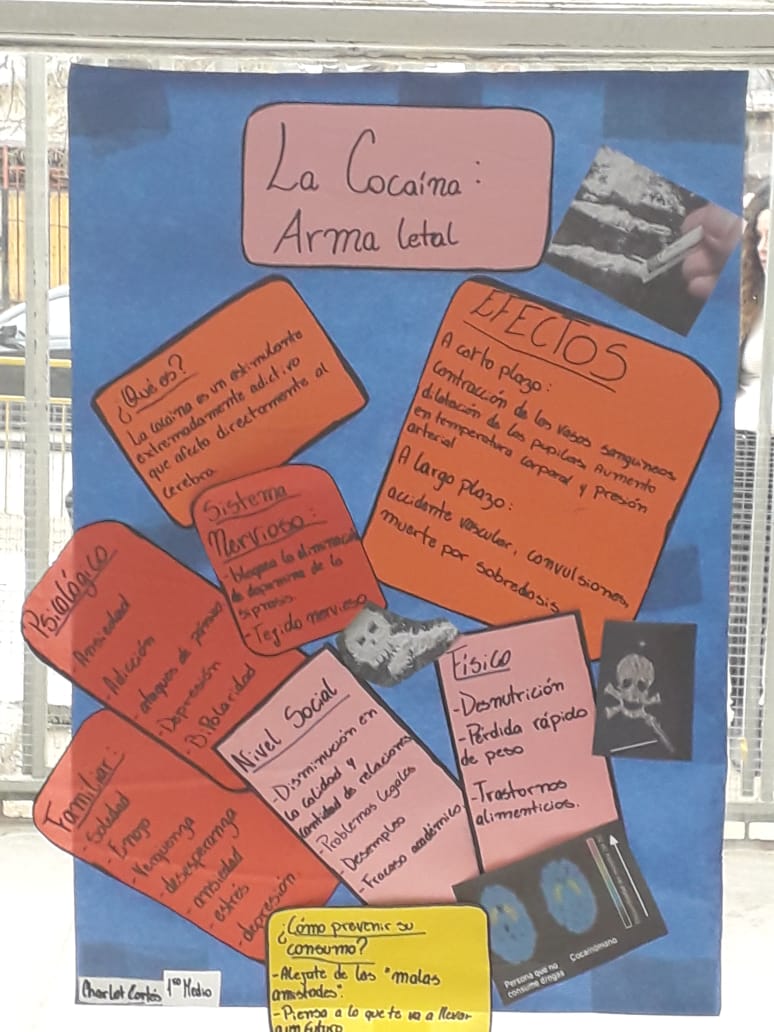 La Cocaína:
Arma letal
¿Qué es?
La cocaína es un estimulante
extremadamente adictivo
que afecta directamente al
cerebro.
EFECTOS
A corto plazo:
contracción de los vasos sanguíneos,
dilatación de las pupilas, Aumento
en temperatura corporal y presión
arterial
A largo plazo:
accidente vascular, convulsiones,
muerte por sobredosis
Sistema
Nervioso:
-bloquea la
de dopamina de la
sipnasis.
-Tejido nervioso
Psiológico
-Ansiedad
-Adicción
-ataques de pánico
-Depresión
-BiPolaridad
Familiar:
-Soledad
-Enojo
-Verguenza
-desesperanza
-ansiedad
-estrés
-depresión
Nivel Social
-Disminución en
la calidad y
cantidad de relaciones
-Problemas legales
-Desempleo
-Fracaso académico
Físico
-Desnutrición
-Pérdida rápida
de peso
-Trastornos
alimenticios.
Persona que no
consume drogas
Cocainómano
¿Cómo prevenir su
consumo?
-Alejate de las "malas
amistades".
-Piensa a lo que te va a llevar
a un futuro
Charlot Cortés 1ro Medio